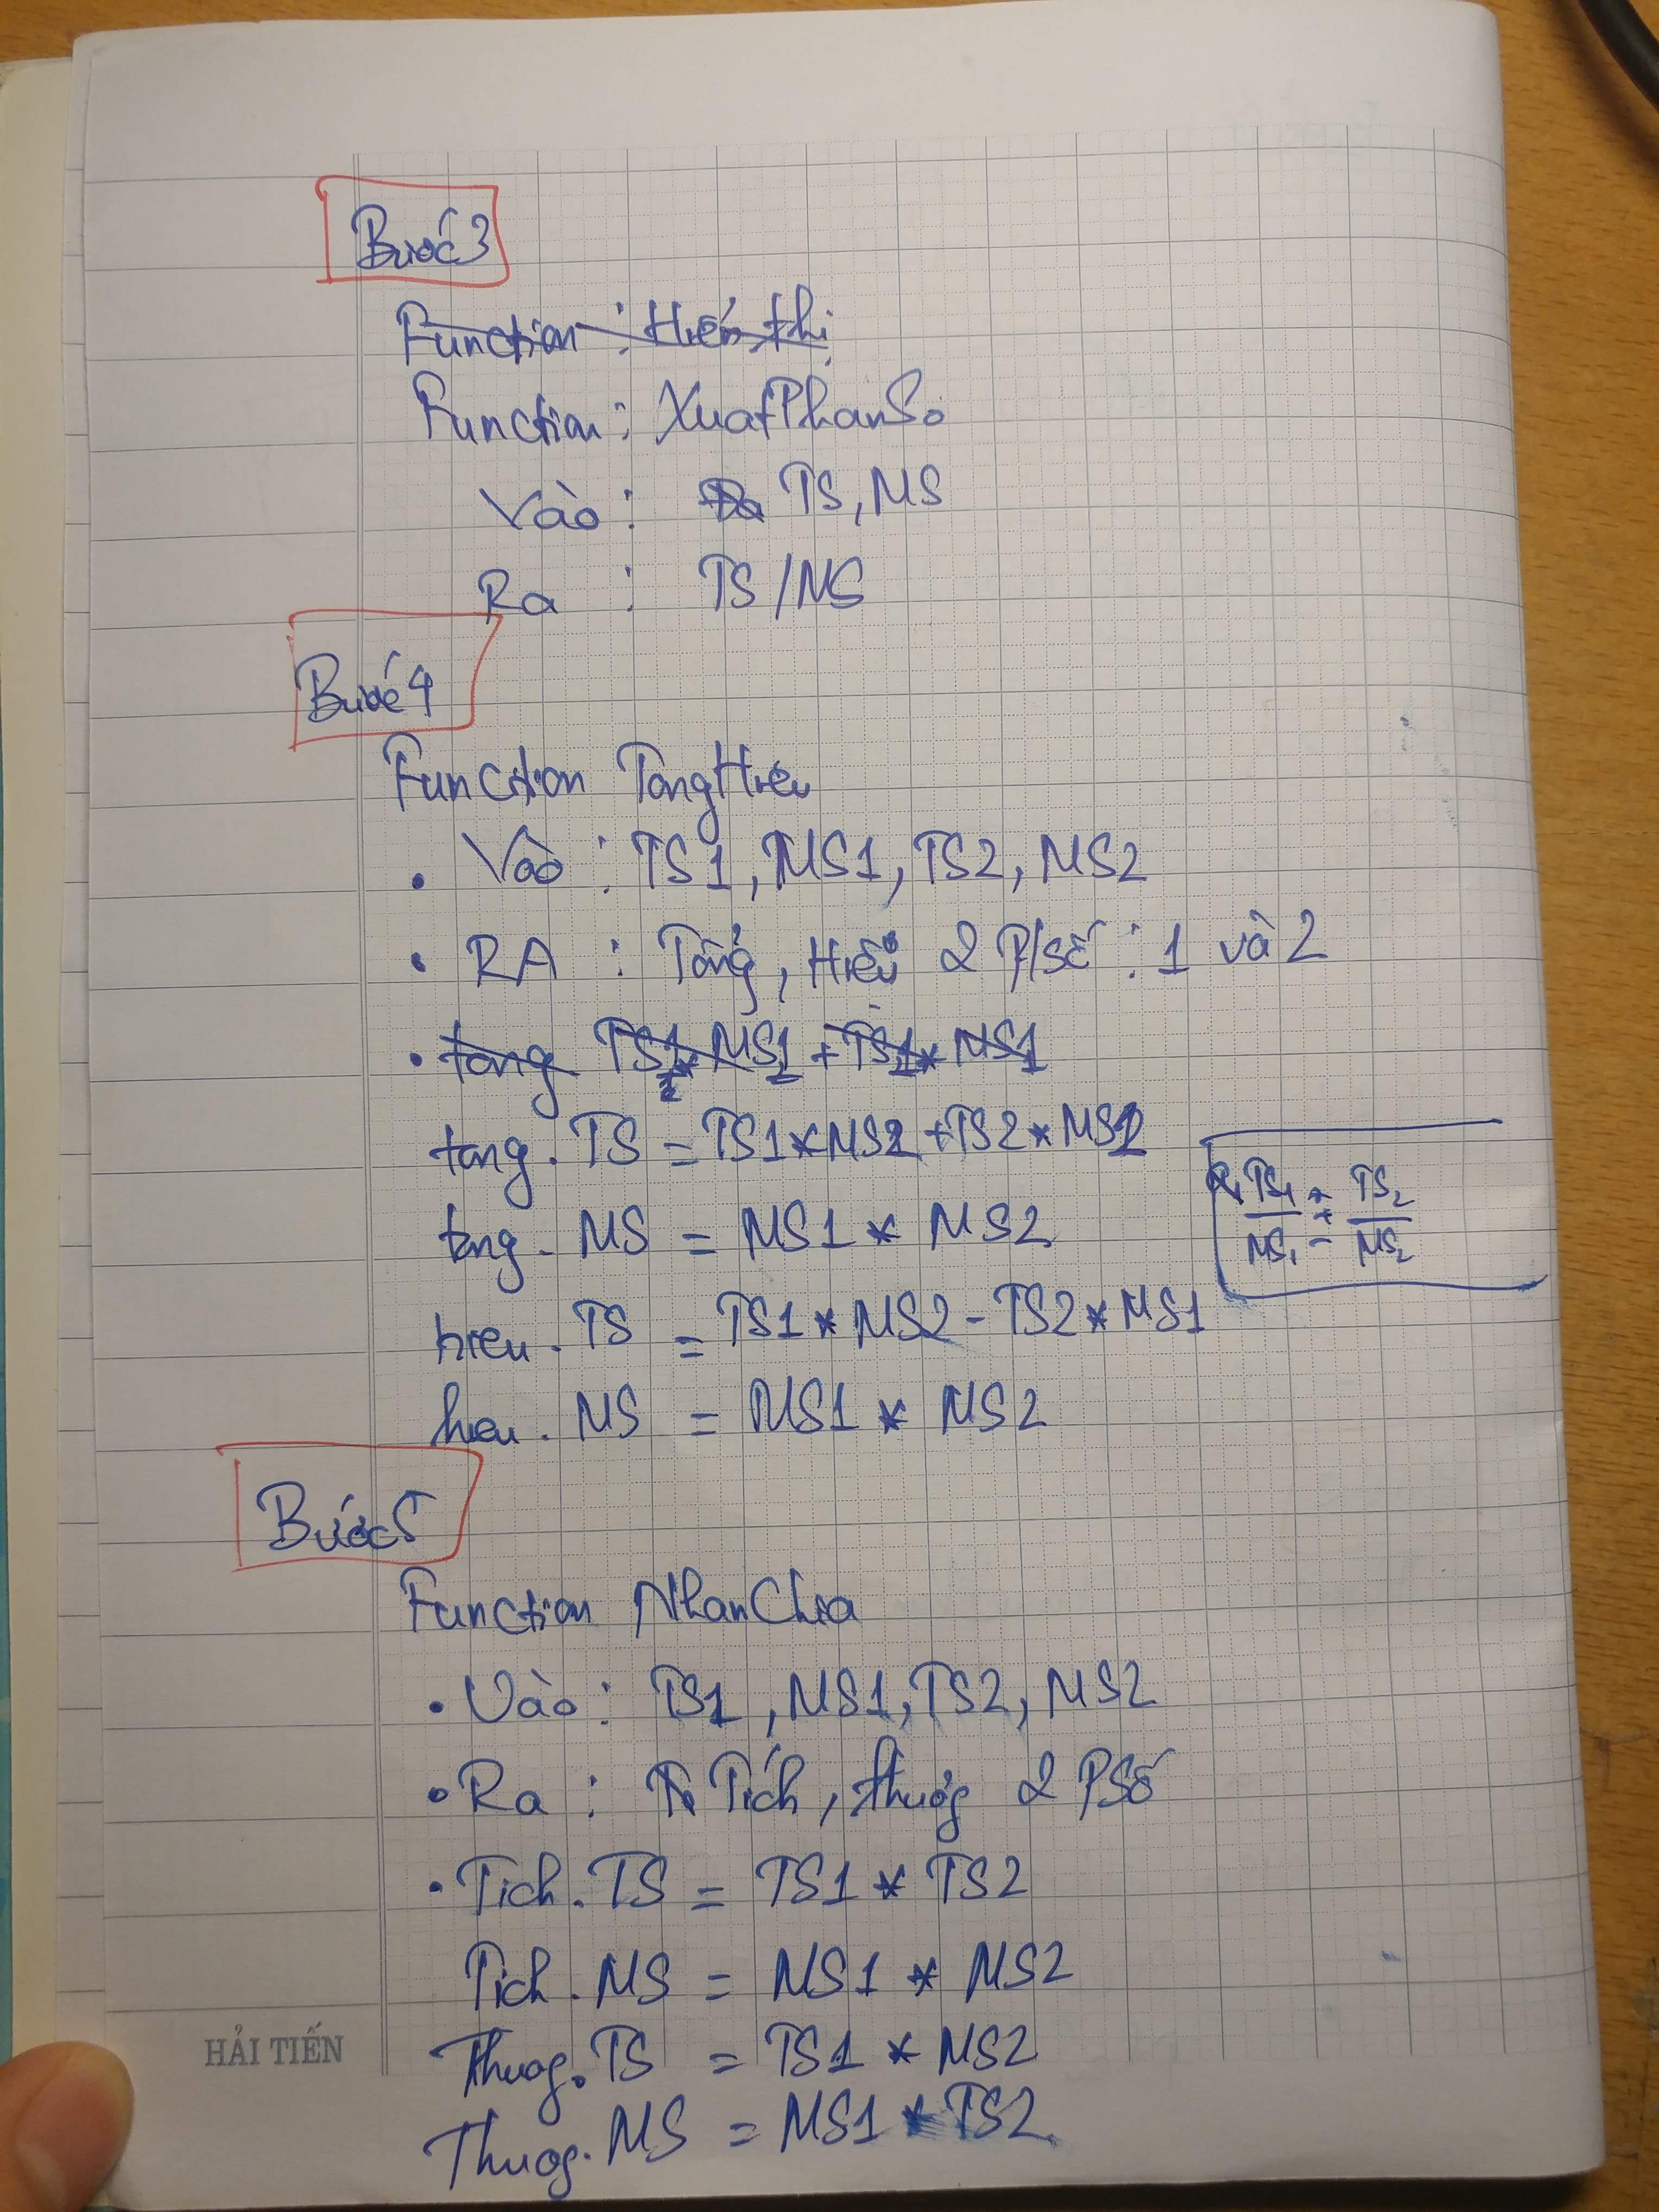 Bước 3
Function : Hiển thị
Function : XuatPhanSo
Vào : TS, MS
Ra : TS/MS
Bước 4
Function TongHieu
• Vào : TS1, MS1, TS2, MS2
• RA : Tổng, Hiệu 2 P/số : 1 và 2
• tong
tong. TS = TS1*MS2 + TS2*MS1
tong. MS = MS1 * MS2
TS1 TS2
MS1 MS2
hieu. TS = TS1 * MS2 - TS2 * MS1
hieu. MS = MS1 * MS2
Bước 5
Function NhanChia
• Vào : TS1, MS1, TS2, MS2
• Ra : Tích, thuơg 2 PSố
• Tich. TS = TS1 * TS2
Tich. MS = MS1 * MS2
Thuog. TS = TS1 * MS2
Thuog. MS = MS1 * TS2
HẢI TIẾN